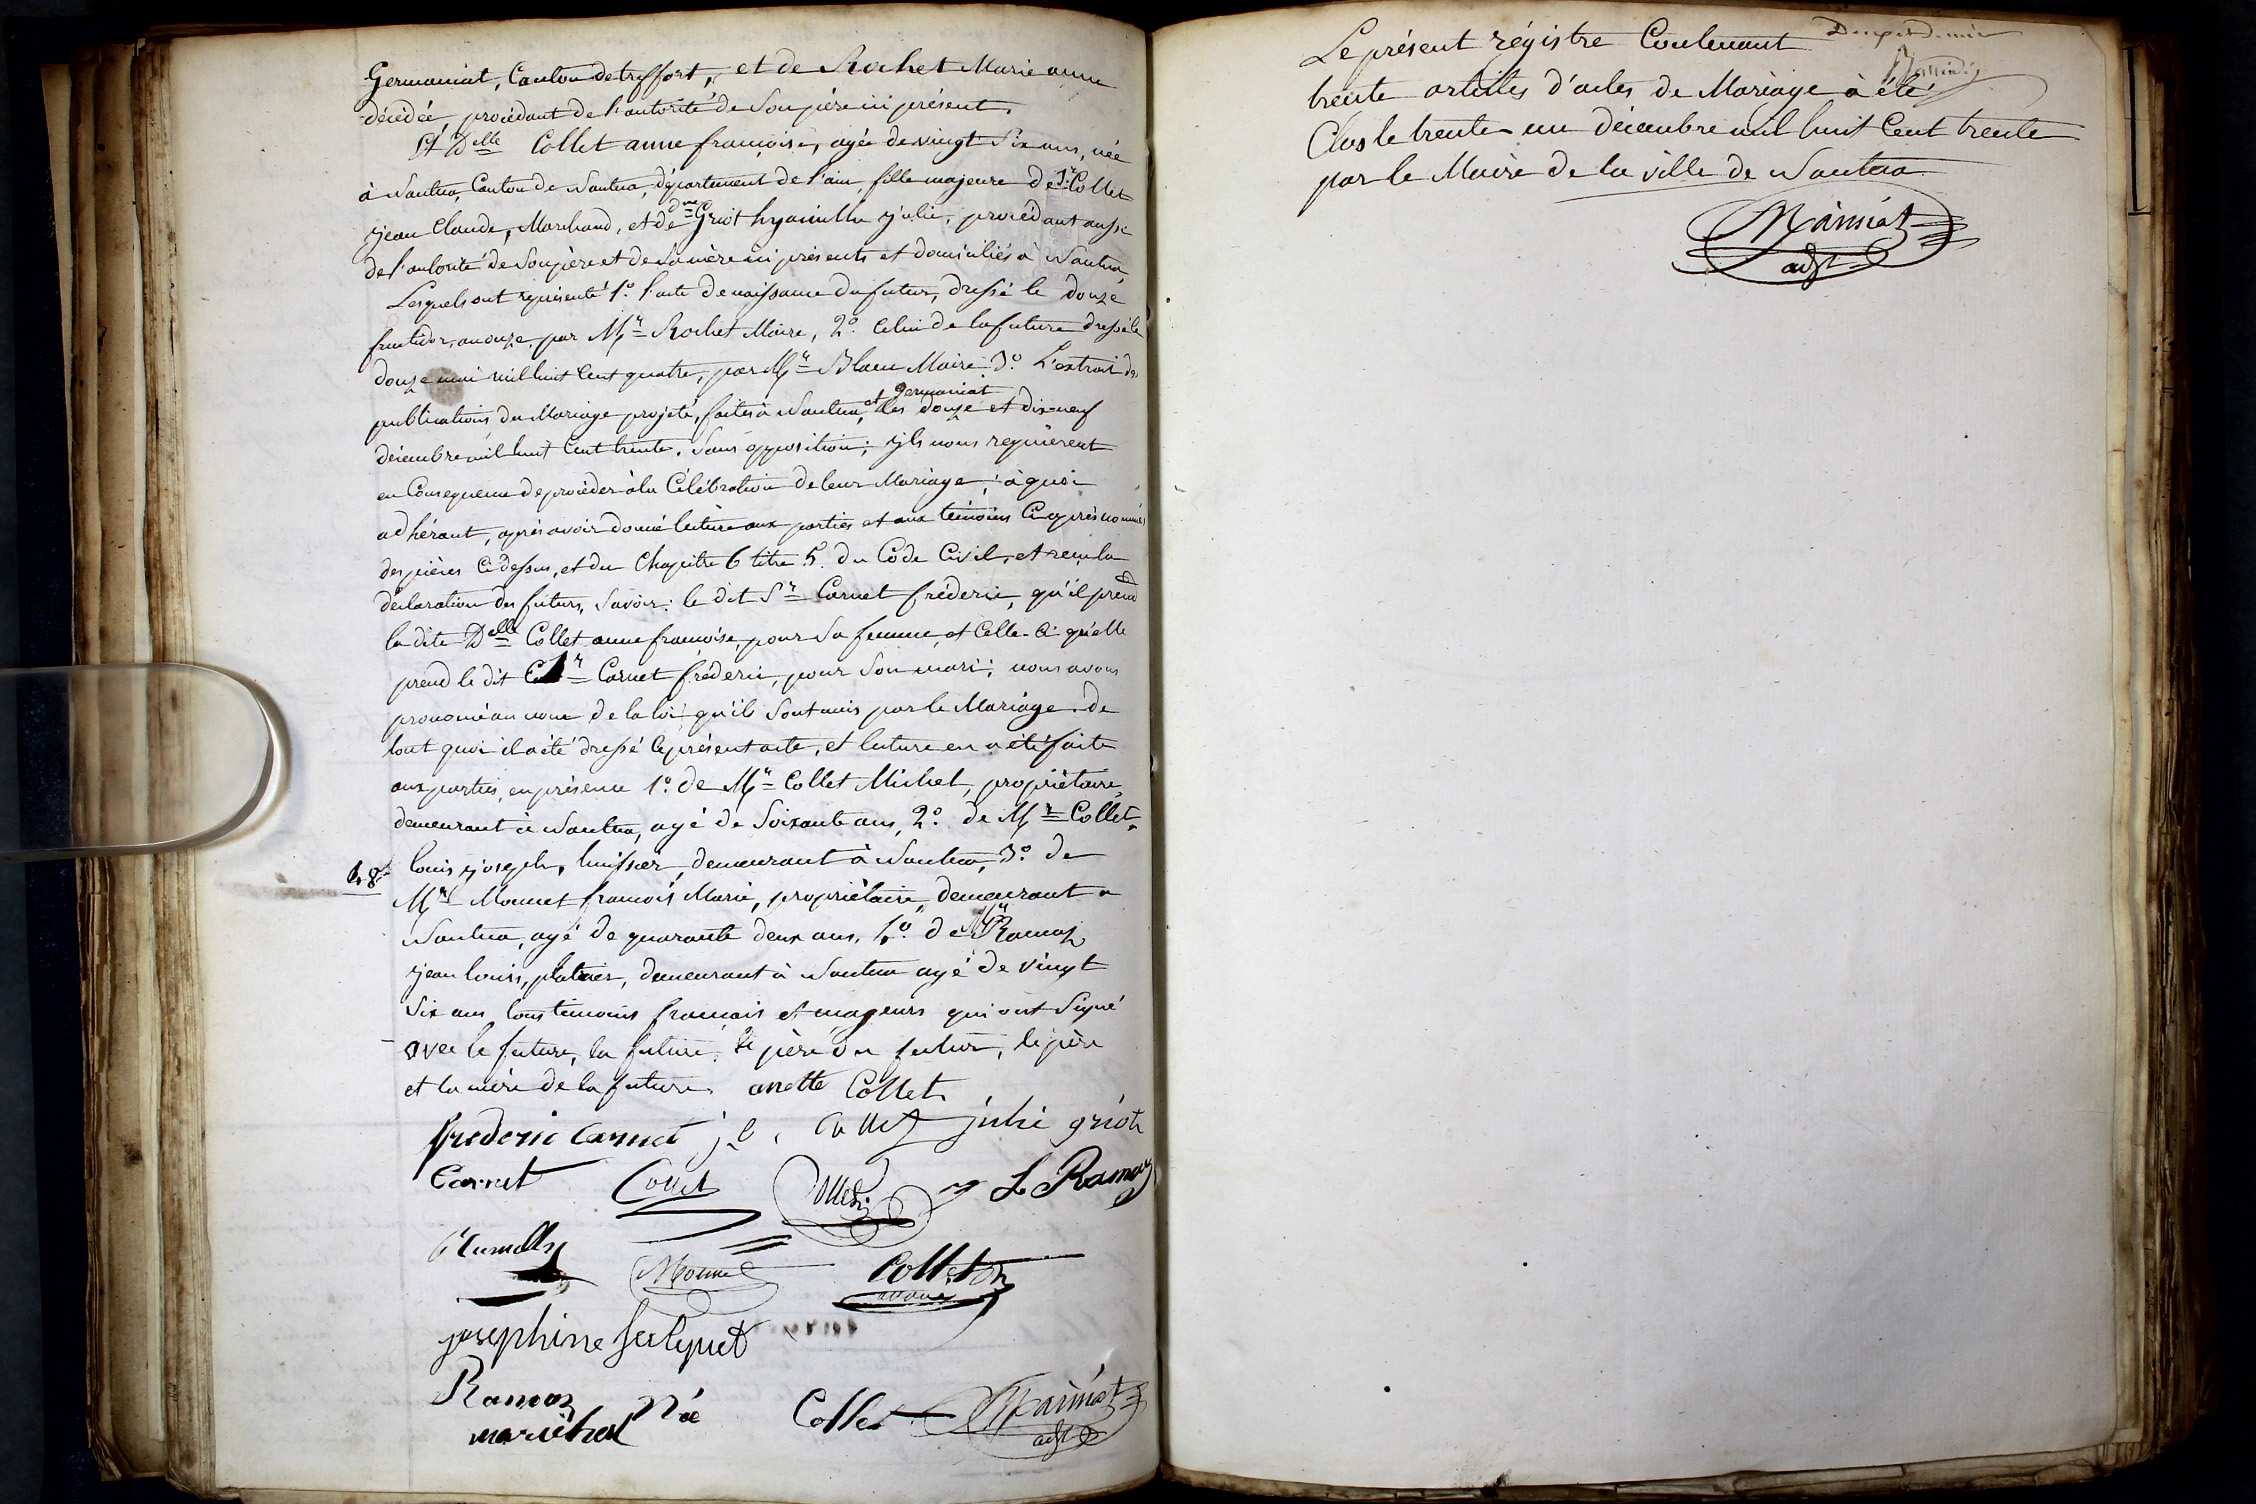 Germaniat, Canton de treffort, et de Rochet Marie anne
décédée, procédant de l'autorité de Son père ici présent.
Et Delle Collet anne françoise, agée de vingt Six ans, née
à Nantua, Canton de Nantua, département de l'ain, fille majeure de Sr Collet
jean Claude, Marchand, et de dme Griot hyacinthe julie, procédant aussi
de l'autorité de Son père et de Sa mère ici présents et domiciliés à Nantua,
Lesquels ont représenté 1o. l'acte de naissance du futur, dressé le douze
fructidor, an onze, par Mr Rochet Maire, 2o. Celui de la future dressé le
douze mai mil huit Cent quatre, par Mr Blanc Maire 3o. L'extrait des
publications du Mariage projeté, faites à Nantua, et Germaniat les douze et dix-neuf
décembre mil huit Cent trente, Sans opposition; ils nous requièrent
en Conséquence de procéder à la Célébration de leur Mariage; à quoi
adhérant, après avoir donné lecture aux parties et aux témoins Ci après nommés
des pièces Ci dessus, et du Chapitre 6 titre 5. du Code Civil, et reçu la
déclaration des futurs, Savoir: le dit Sr Carnet fréderic, qu'il prend
la dite Delle Collet anne françoise, pour Sa femme, et Celle-Ci qu'elle
prend le dit Sr Carnet fréderic, pour Son mari; nous avons
prononcé au nom de la loi qu'ils Sont unis par le Mariage. de
tout quoi il a été dressé le présent acte, et lecture en a été faite
aux parties, en présence 1o. de Mr Collet Michel, propriétaire,
demeurant à Nantua, agé de Soixante ans, 2o. de Mr Collet
louis joseph, huissier, demeurant à Nantua, 3o. de
48
Mr Monnet françois Marie, propriétaire, demeurant a
Nantua, agé de quarante deux ans, 4o. de Mr Ramoz
jean louis, platrier, demeurant à Nantua agé de vingt
Six ans tous témoins francais et majeurs qui ont Signé
avec le futur, la future, le père du futur, le père
et la mère de la future. anette Collet
frederic Carnet j. C. Collet julie griot
Carnet Collet Collet L Ramoz
Monnet Collet
josephine
Ramoz Née Collet Mainiat
maréchal adjt
Le présent régistre Contenant
trente articles d'actes de Mariage à été
Clos le trente-un décembre mil huit Cent trente
par le Maire de la ville de Nantua
Mainiat
adjt